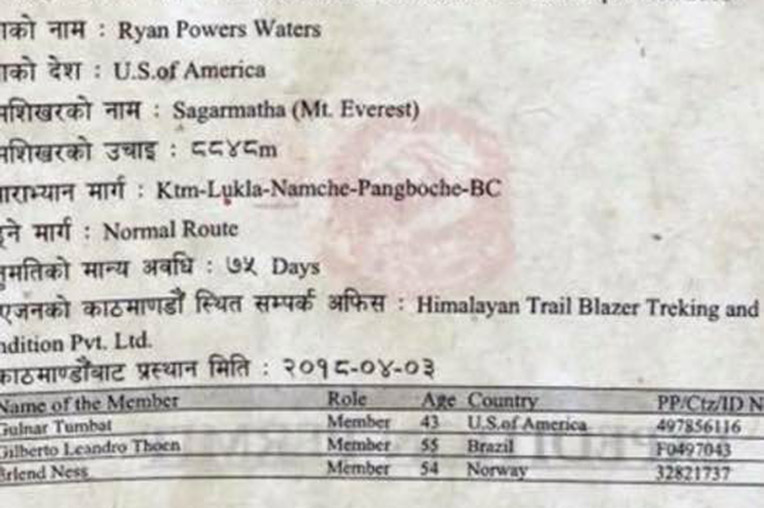 ाको नाम : Ryan Powers Waters
ाको देश : U.S.of America
मशिखरको नाम : Sagarmatha (Mt. Everest)
मशिखरको उचाइ : ८८४८m
ाराभ्यान मार्ग : Ktm-Lukla-Namche-Pangboche-BC
ने मार्ग : Normal Route
नुमतिको मान्य अवधि : ७५ Days
एजनको काठमाणडौं स्थित सम्पर्क अफिस : Himalayan Trail Blazer Treking and
ndition Pvt. Ltd.
काठमाण्डौंबाट प्रस्थान मिति : २०१८-०४-०३
Name of the Member Role Age Country PP/Ctz/ID N
Gulnar Tumbat Member 43 U.S.of America 497856116
Gilberto Leandro Thoen Member 55 Brazil F0497043
Erlend Ness Member 54 Norway 32821737